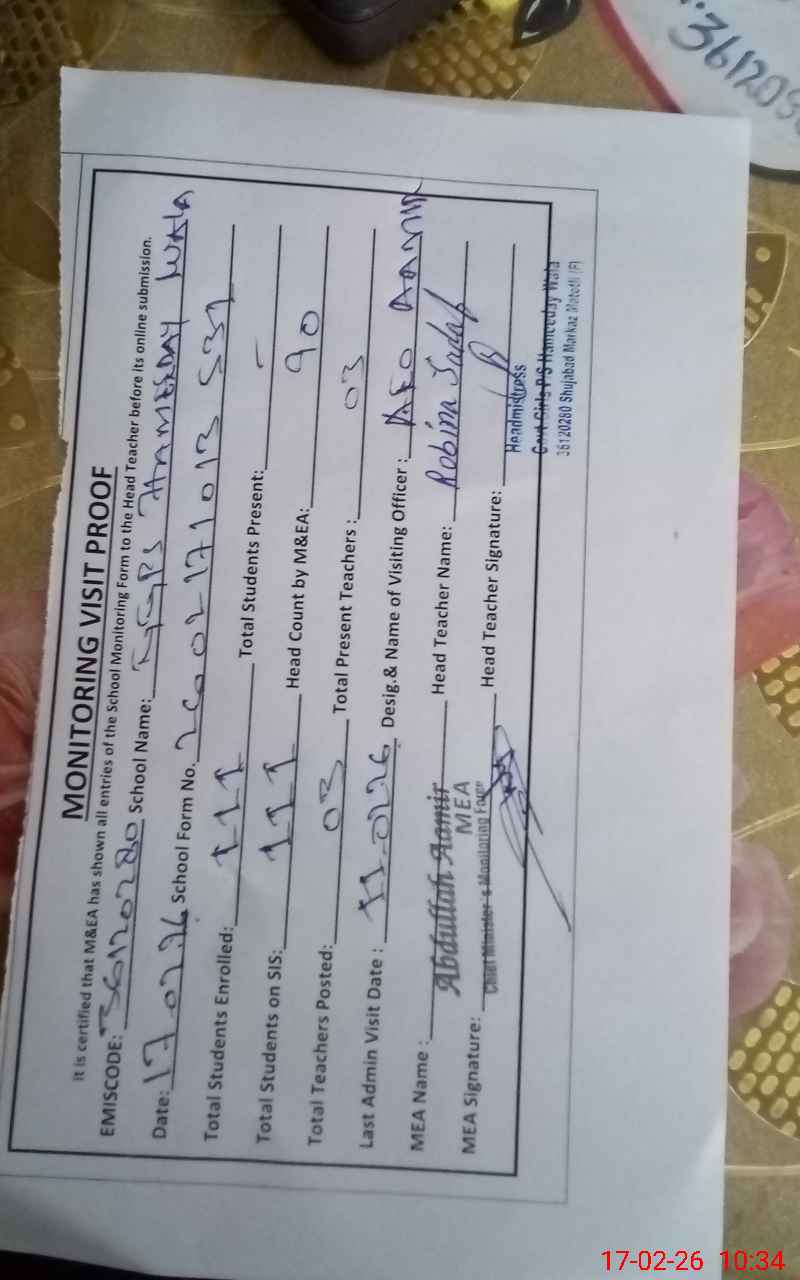 MONITORING VISIT PROOF
It is certified that M&EA has shown all entries of the School Monitoring Form to the Head Teacher before its online submission.
EMISCODE: 36120280 School Name: GGPS HAMEEDAY WALA
Date: 17.02.26 School Form No.
Total Students Enrolled: 111 Total Students Present: -
Total Students on SIS: 111 Head Count by M&EA: 90
Total Teachers Posted: 03 Total Present Teachers : 03
Last Admin Visit Date : 11.02.26 Desig.& Name of Visiting Officer : AEO
MEA Name : Abdullah Aamir Head Teacher Name: Robina Sadaf
MEA
MEA Signature: Chief Minister's Monitoring Force Head Teacher Signature:
Headmistress
Govt Girls P/S Hameeday Wala
36120280 Shujabad Markaz Matotli (F)
17-02-26 10:34